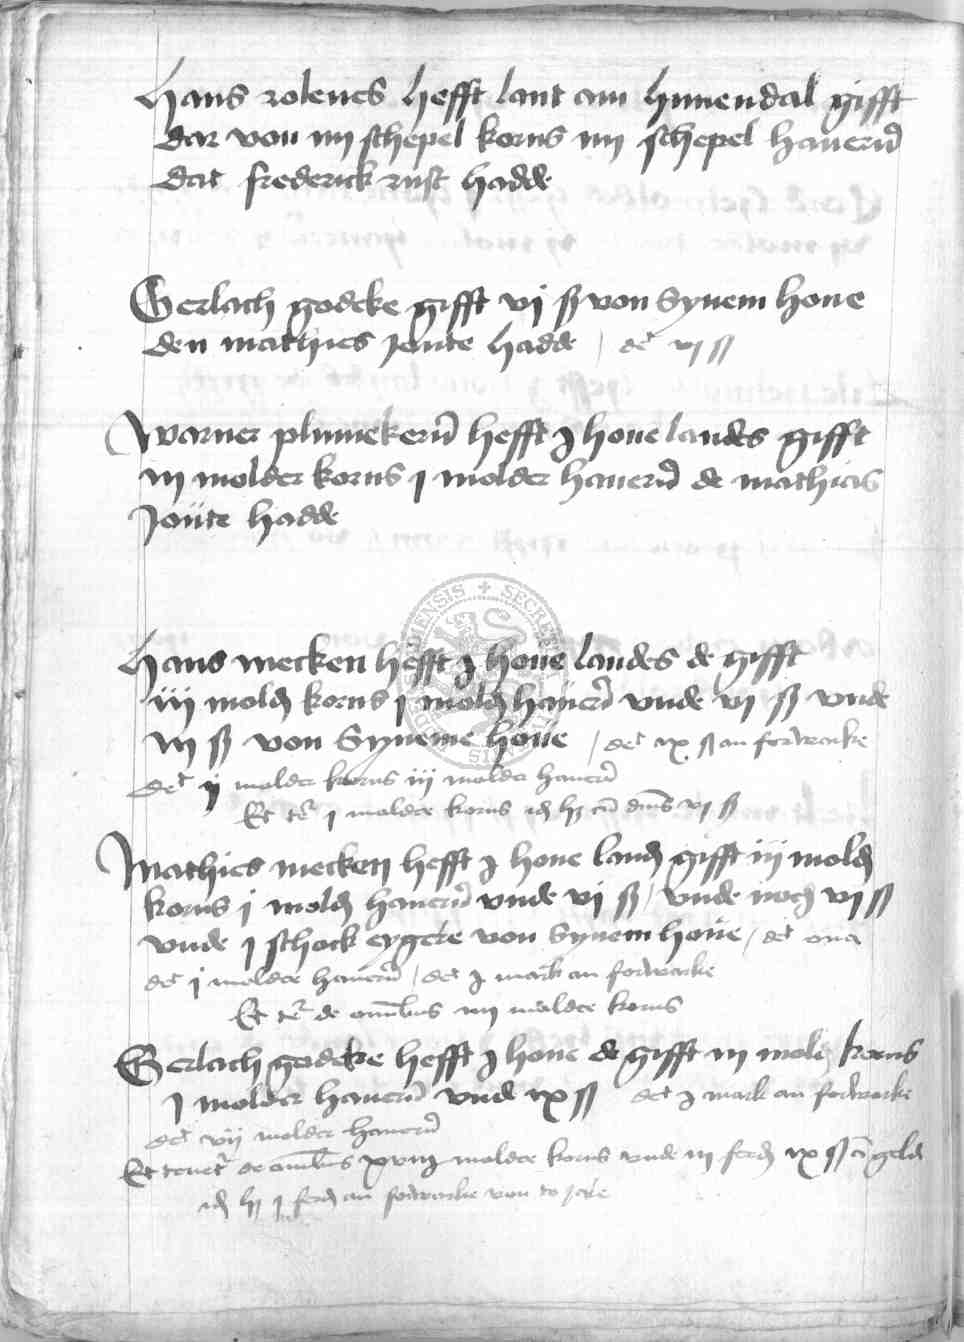 Hans roleues hefft lant am hmmendal gifft
dar von iiij schepel korns iiij schepel hauern̄
dat frederick rust hadde
Gerlach godeke gifft vj ß von Synem houe
den mathies Joute hadde / det vj ß
Warner plumekern̄ hefft j houe landes gifft
iij molder korns j molder hauern̄ de mathias
Joute hadde
Hans mecken hefft j houe landes de gifft
iij mold korns j mold hauern̄ vnde vj ß vnde
iij ß von Syneme houe / det ix ß an forwerke
det ij molder korns iij molder hauern̄
Et j molder korns vj ß
Mathies mecken hefft j houe land gifft iij mold
korns j mold hauern̄ vnde vj ß / vnde noch vj ß
vnde j schock eygere von Synem houe / det oua
det j molder hauern̄ / det j mark an forwerke
Et de omībus iiij molder korns
Gerlach godeke hefft j houe de gifft iij mold korns
j molder hauern̄ vnd ix ß det j mark an forwerke
det vij molder hauern̄
Et tenet de omībus molder korns vnde iij ferd ix ß geld
j ferd an forwerke von to